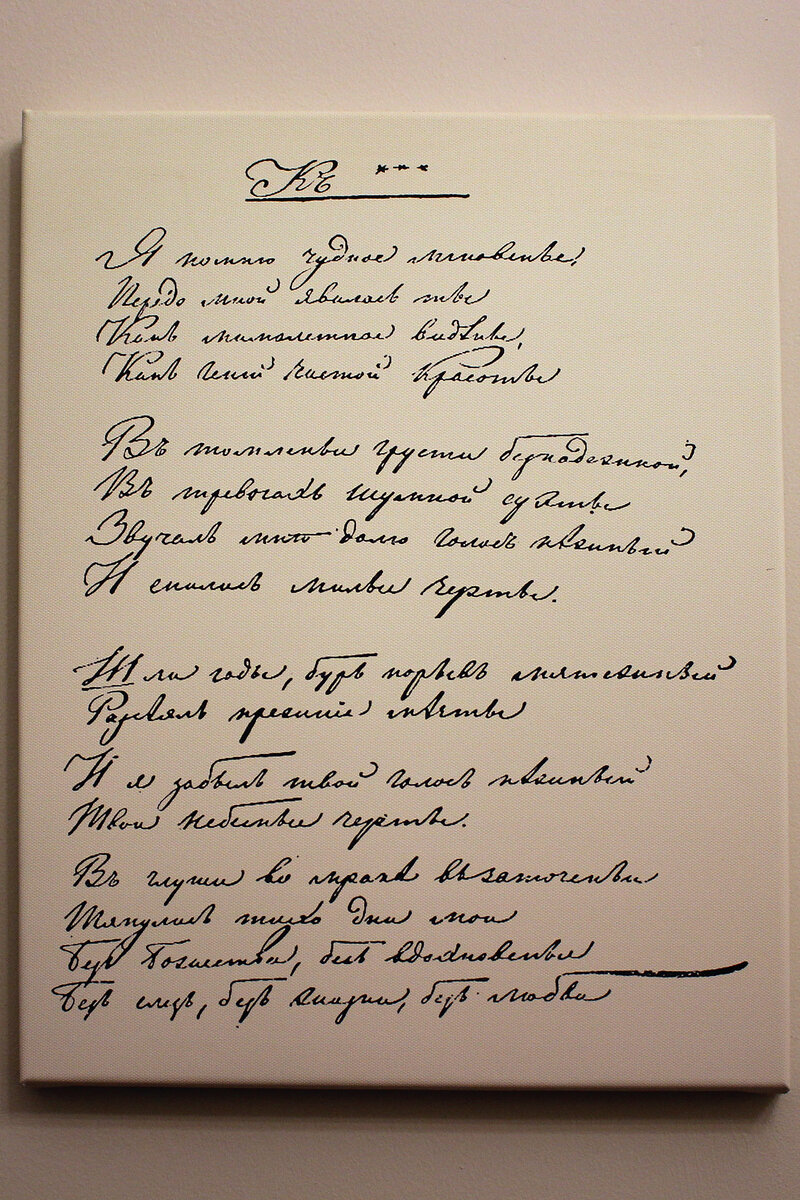 Къ ***
Я помню чудное мгновенье,
Передо мной явилась ты
Какъ мимолетное видѣнье,
Какъ геній чистой красоты
Въ томленьи грусти безнадежной,
Въ тревогахъ шумной суѣты
Звучалъ мнѣ долго голосъ нѣжный
И снились милыя черты.
Шли годы, бурь порывъ мятежный
Разсѣялъ прежніе мечты
И я забылъ твой голосъ нѣжный
Твои небесные черты.
Въ глуши во мракѣ въ заточеньи
Тянулись тихо дни мои
Безъ божества, безъ вдохновенья
Безъ слезъ, безъ жизни, безъ любви